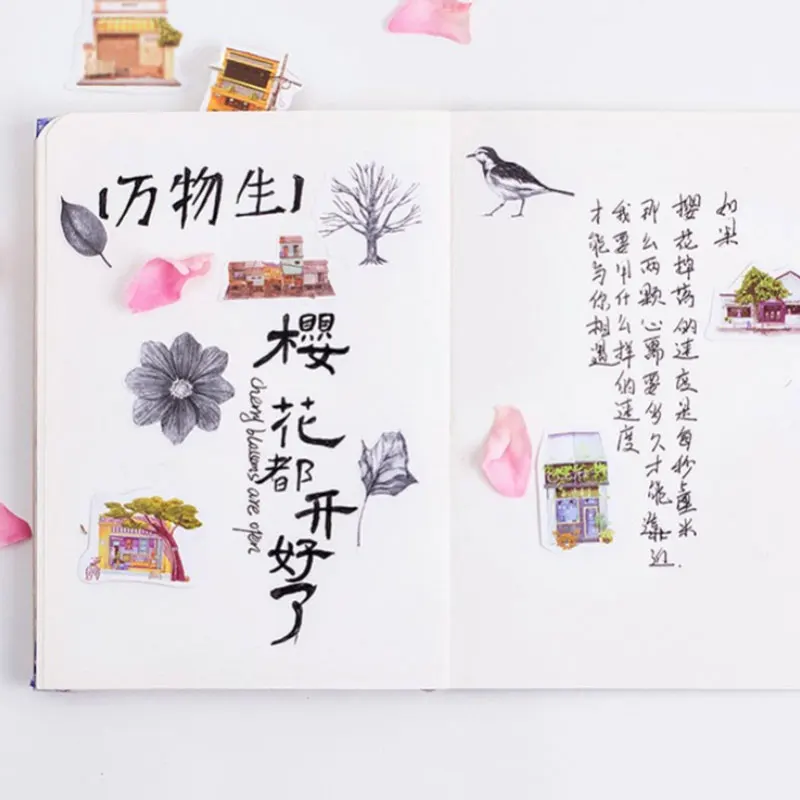 【万物生】
櫻花都开好了
cherry blossoms are open
如果
櫻花掉落的速度是每秒5厘米
那么两颗心需要多久才能靠近.
我要用什么样的速度
才能与你相遇